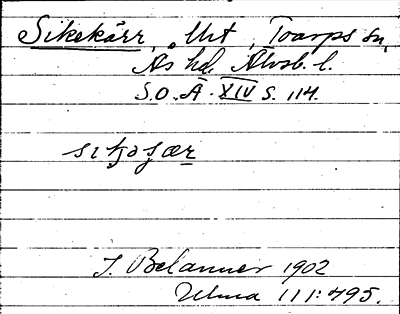 Sikekärr, Urt, Toarps sn,
Ås hd. Älvsb. l.
S.O.Ä. XIV s. 114.
J. Belanner 1902
Ulma 111:495.